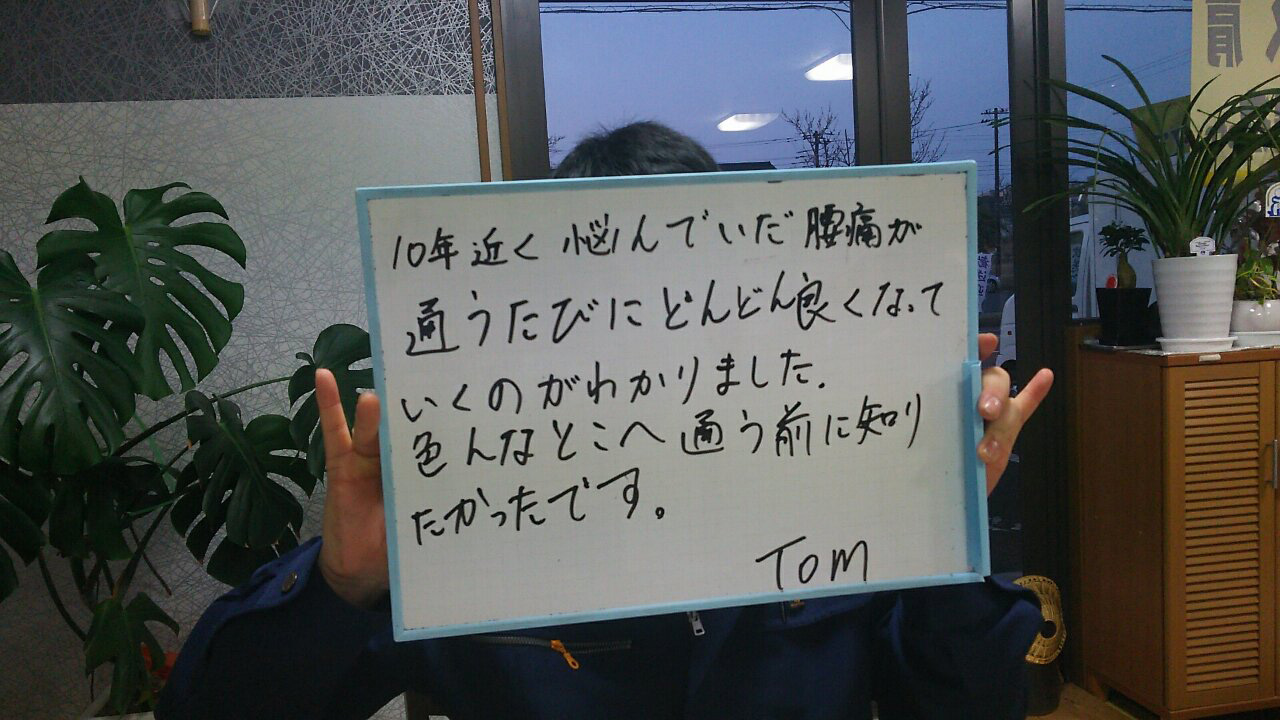 10年近く悩んでいだ腰痛が
通うたびにどんどん良くなって
いくのがわかりました.
色んなとこへ通う前に知り
たかったです。
TOM
肩